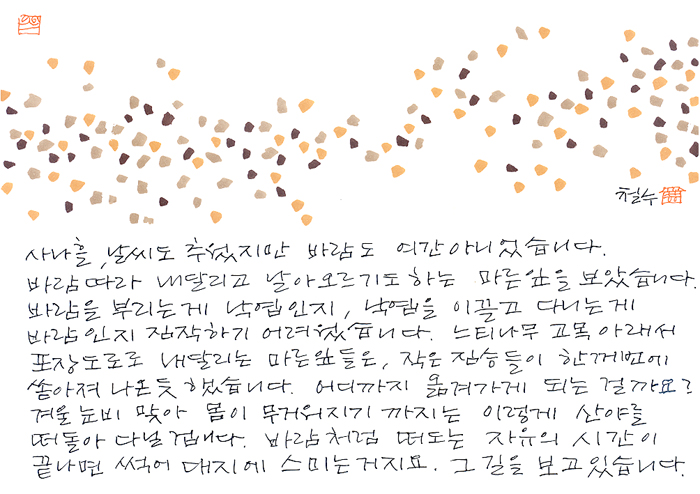 철수
사나흘, 날씨도 추웠지만 바람도 여간아니었습니다.
바람따라 내달리고 날아오르기도하는 마른잎을 보았습니다.
바람을 부리는게 낙엽인지, 낙엽을 이끌고 다니는게
바람인지 짐작하기 어려웠습니다. 느티나무 고목아래서
포장도로로 내달리는 마른잎들은, 작은짐승들이 한꺼번에
쏟아져 나온듯 했습니다. 어디까지 옮겨가게 되는걸까요?
겨울눈비 맞아 몸이 무거워지기 까지는 이렇게 산야를
떠돌아 다닐겁니다. 바람처럼 떠도는 자유의 시간이
끝나면 썩어 대지에 스미는거지요. 그길을 보고있습니다.